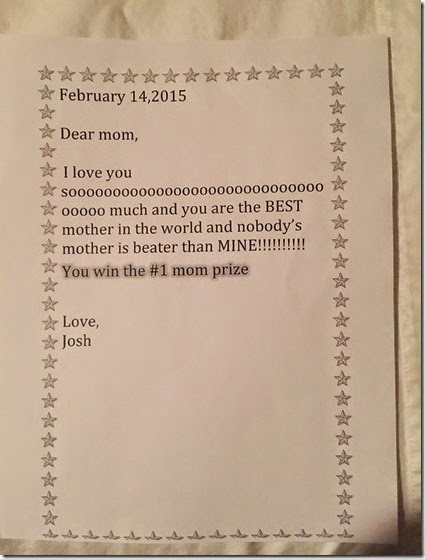 February 14,2015
Dear mom,
I love you
soooooooooooooooooooooooooooooo
ooooo much and you are the BEST
mother in the world and nobody's
mother is beater than MINE!!!!!!!!!!
You win the #1 mom prize
Love,
Josh